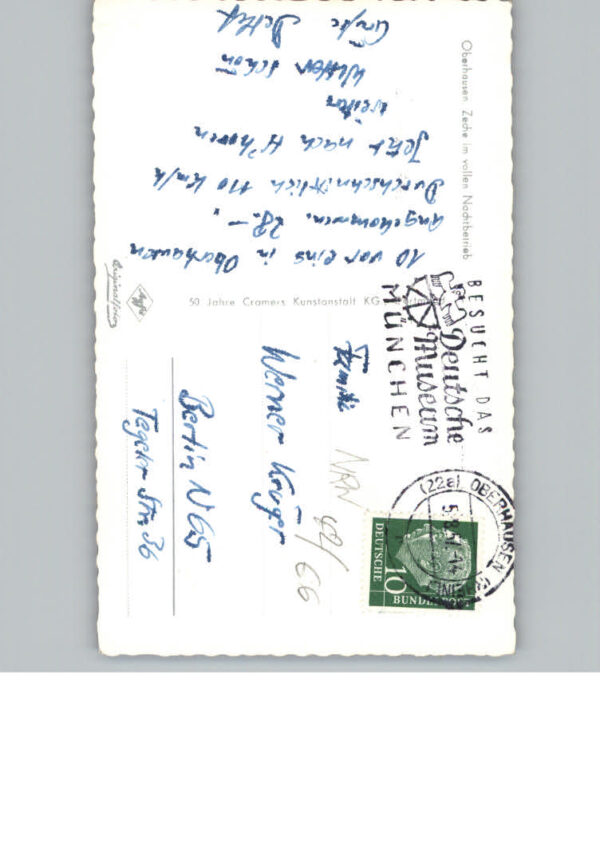 Oberhausen Zeche im vollen Nachtbetrieb
10 vor eins in Oberhausen
angekommen. 28.-,
Durchschnittlich 110 km/h
Jetzt nach
weiter
Wetter schön
Grüße Detlef
Agfa
Originalfoto
50 Jahre Cramers Kunstanstalt KG
BESUCHT DAS
Deutsche
Museum
MÜNCHEN
(22a) OBERHAUSEN
DEUTSCHE
BUNDESPOST
10
Familie
Werner Krüger
Berlin N 65
Tegeler Str. 36
NRW